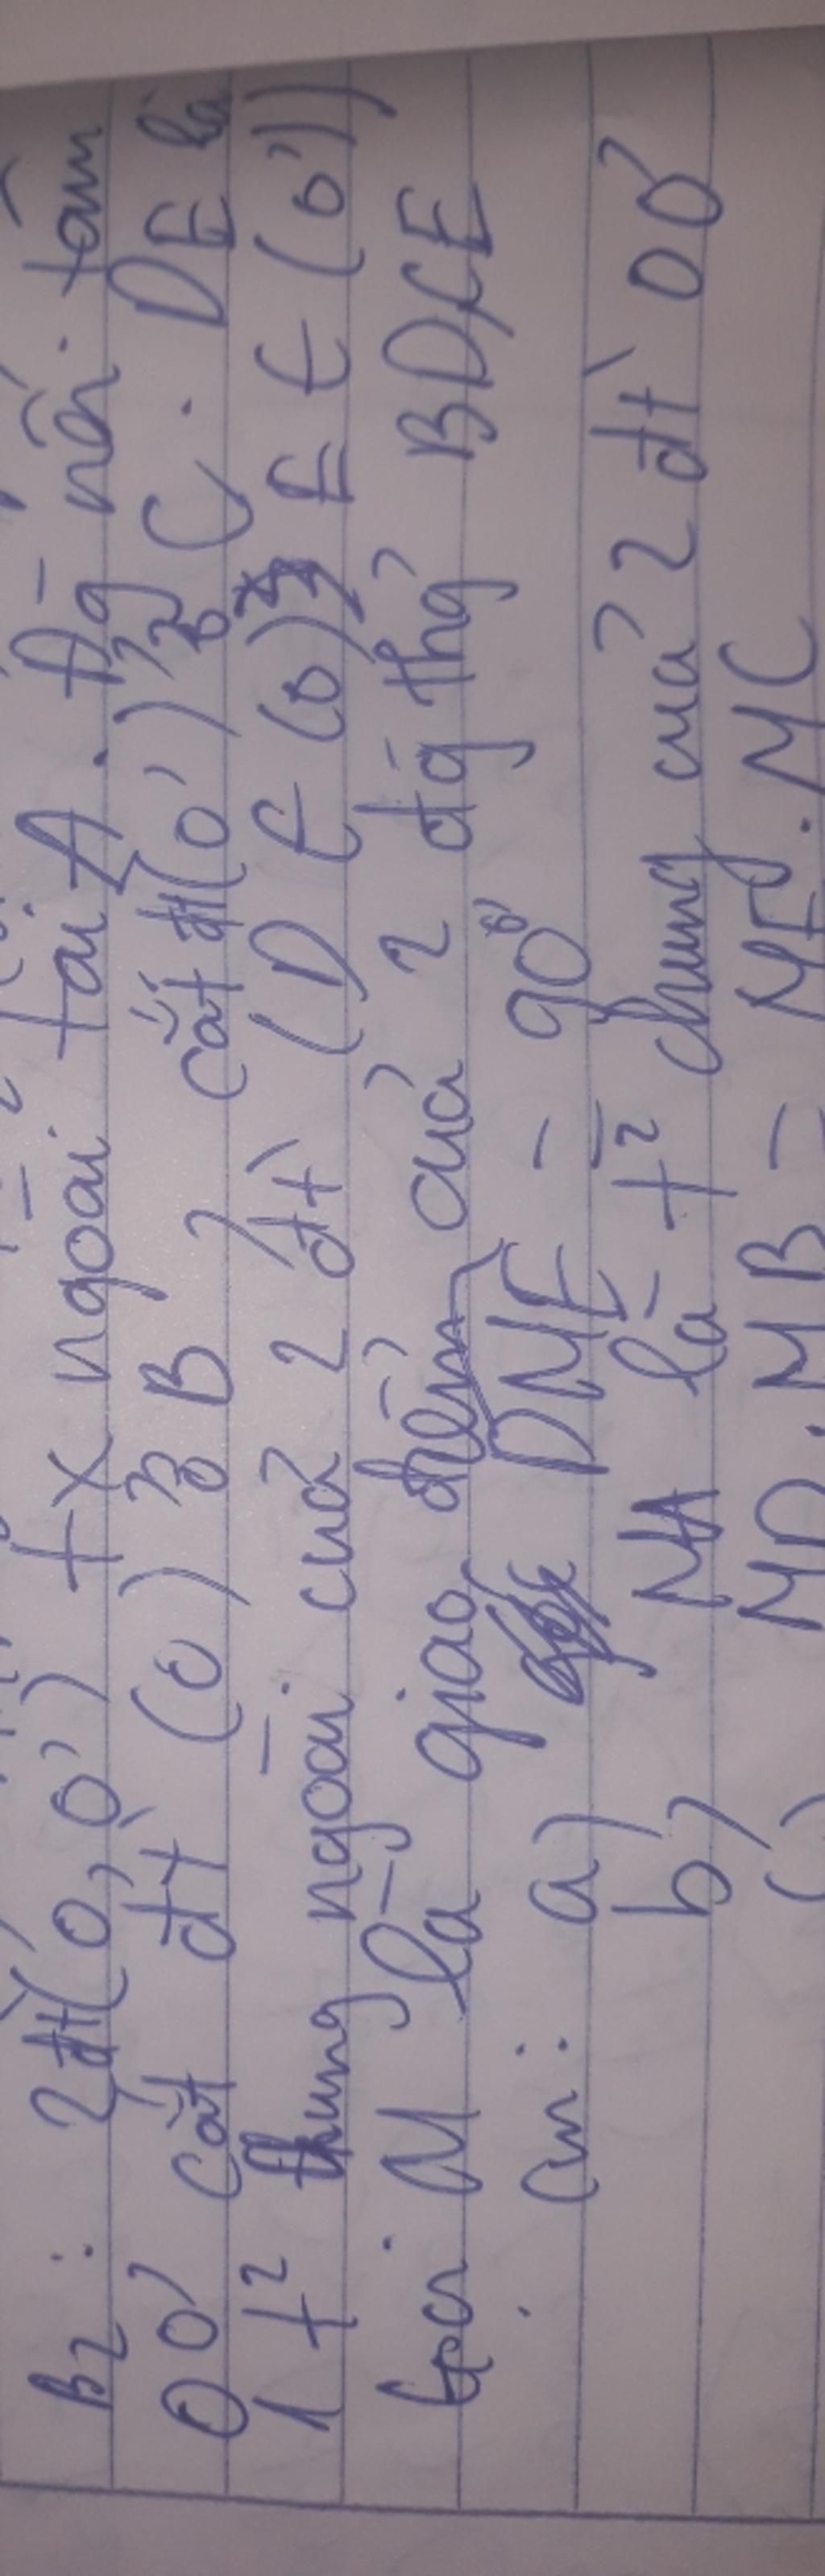 B2: 2 đt (O, O') tx ngoài tại A. Đg nối tâm
OO' cắt đt (O) ở B, cắt đt (O') ở C. DE là
1 t² chung ngoài của 2 đt (D ∈ (O), E ∈ (O'))
Gọi M là giao điểm của 2 đg thg BD, CE
Cm: a) DME = 90°
b) MA là t² chung của 2 đt OO'
c) MD.MB = ME.MC